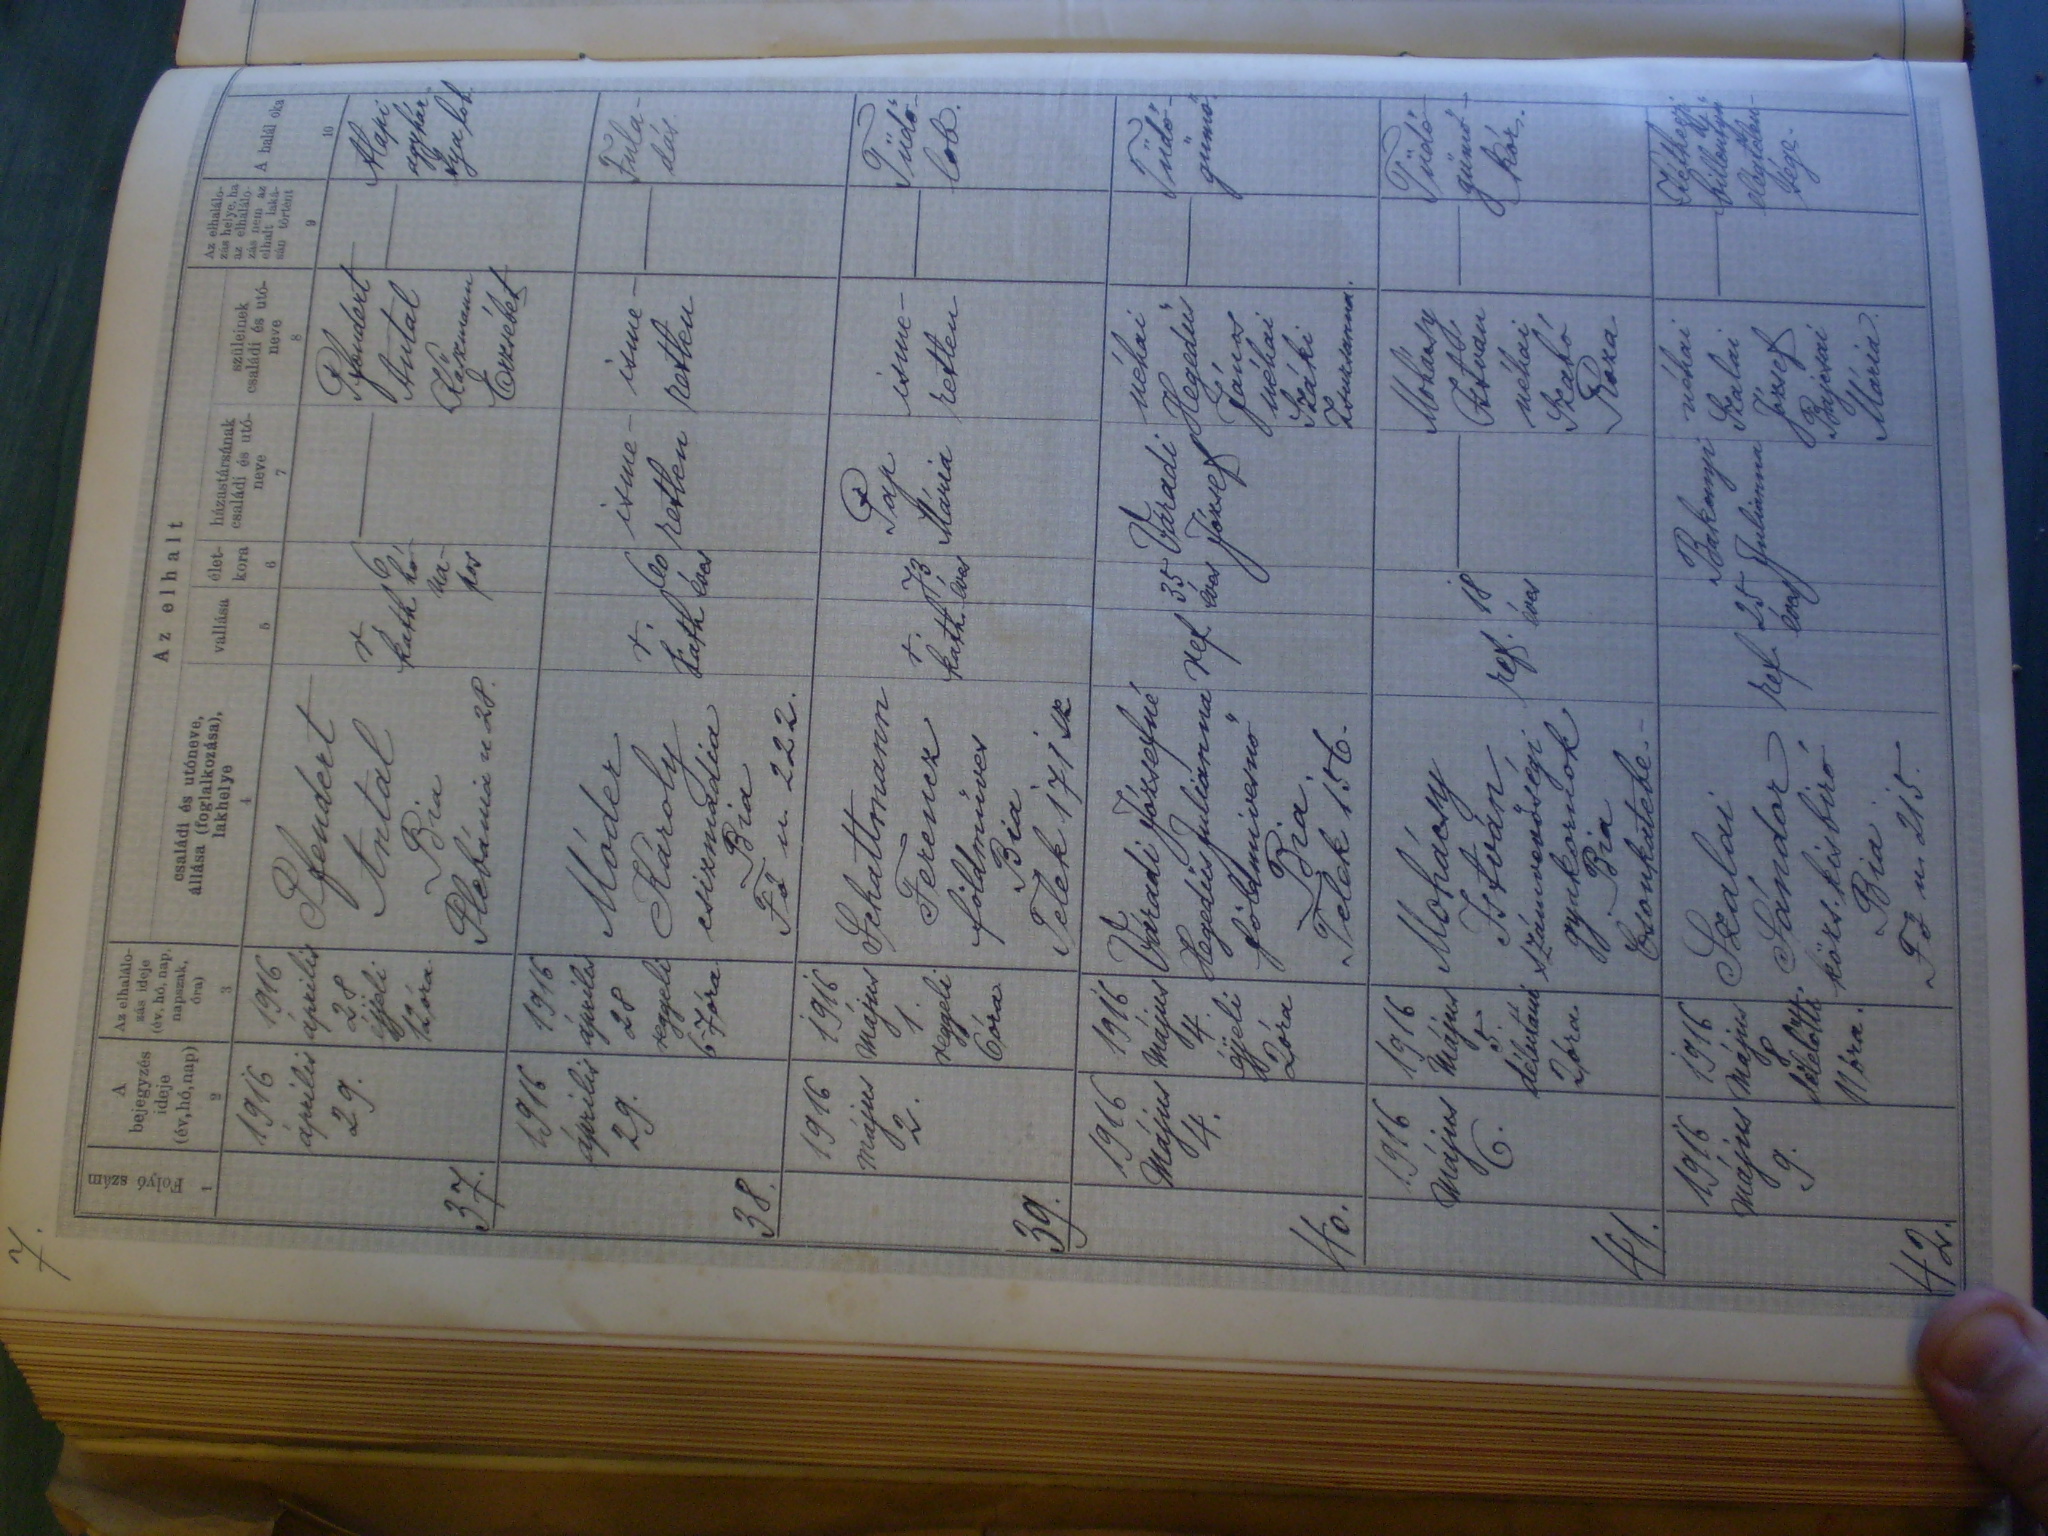 7.
Az elhalt
Folyó szám
A bejegyzés ideje (év, hó, nap)
Az elhalálo-
zás ideje
(év, hó, nap,
napszak,
óra)
családi és utóneve,
állása (foglalkozása),
lakhelye
vallása
élet-
kora
házastársának
családi és utó-
neve
szüleinek
családi és utó-
neve
Az elhalálo-
zás helye, ha
az elhalálo-
zás nem az
elhalt laká-
sán történt
A halál oka
1 2 3 4 5 6 7 8 9 10
37.
1916
április
29.
1916
április
28
éjjeli
12 óra.
Pfendert
Antal
Bia
Plébánia u 28.
r
kath.
6
hó-
na-
pos
Pfendert
Antal
Erzsébet
Alapi
38.
1916
április
29.
1916
április
28
reggeli
67óra.
Móder
Károly
csizmadia
Bia
Fő u. 222.
r.
kath
60
éves
isme-
retlen
isme-
retlen
Fula-
dás.
39.
1916
május
2.
1916
május
1.
reggeli
6óra.
Schattmann
Ferencz
földmíves
Bia
Telek 171 sz
r.
kath.
73
éves
Pap
Mária
isme-
retlen
Tüdő-
lob.
40.
1916
Május
4.
1916
május
4.
éjjeli
2óra
Váradi Józsefné
Hegedüs Julianna
földmivesnő
Bia
Telek 156.
ref
35
éves
Váradi
József
néhai
Hegedüs
János
néhai
Száki
Zsuzsanna.
Tüdő-
gümő-
41.
1916
Május
6.
1916
Május
5
délutáni
2óra.
Mohácsy
István
számvevőségi
gyakornok
Bia
Csonkátebe-
ref.
18
éves
Mohácsy
István
néhai
Szabó
Roza
Tüdő-
gümő-
kór.
42.
1916
május
9.
1916
Május
8
délelőtti
11óra.
Szalai
Sándor
közs. kisbiró
Bia
Fő u 215.
ref.
25
éves
Bakonyi
Julianna
néhai
Szalai
József
Bajcsai
Mária.
Szívbillentyű
elégtelen-
sége.